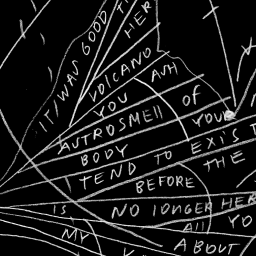 IT WAS GOOD T
HER
VOLCANO
YOU AM
AUTROSMEll of
BODY YOU
I TEND TO EXIST
BEFORE THE
IS NO lONGER HER
MY All YO
ABOUT